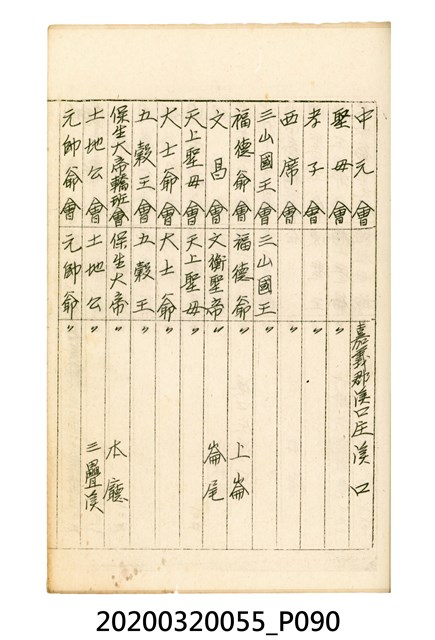 中元會 嘉義郡溪口庄溪口
聖母會 〃
孝子會 〃
西席會 〃
三山國王會 三山國王 〃
福德爺會 福德爺 〃 上崙
文昌會 文衡聖帝 〃 崙尾
天上聖母會 天上聖母 〃
大士爺會 大士爺 〃
五穀王會 五穀王 〃
保生大帝轎班會 保生大帝 〃 本廳
土地公會 土地公 〃 三疊溪
元帥爺會 元帥爺 〃
20200320055_P090